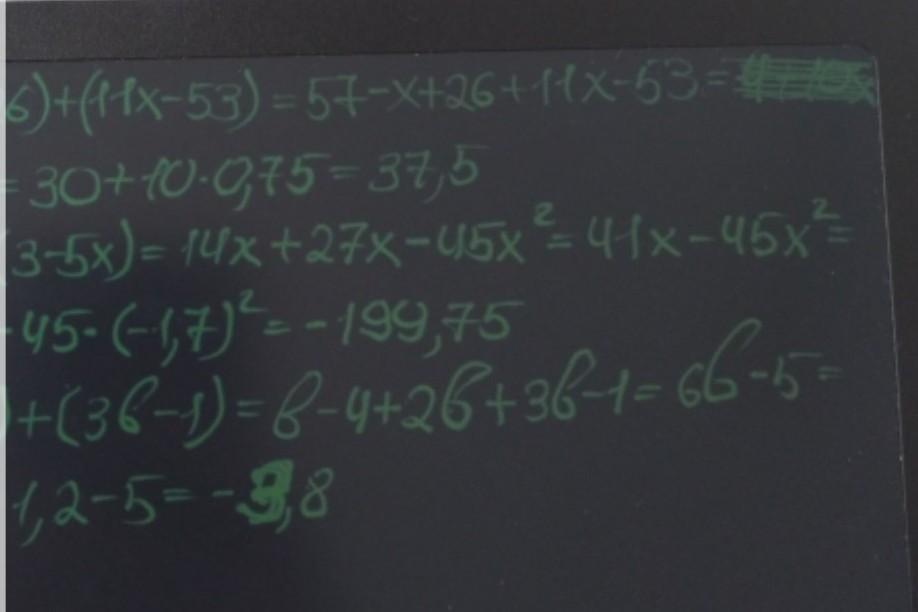 6)+(11x-53)=57-x+26+11x-53=
=30+10·0,75=37,5
(3-5x)=14x+27x-45x²=41x-45x²=
-45·(-1,7)²=-199,75
)+(3b-1)=b-4+2b+3b-1=6b-5=
1,2-5=-3,8